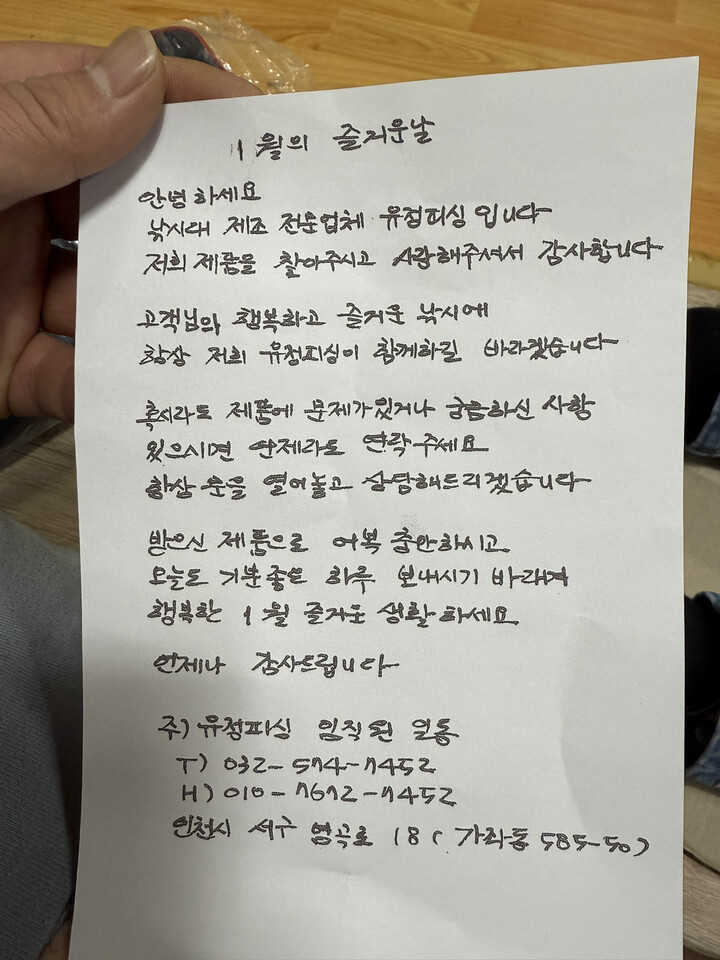 1월의 즐거운날
안녕하세요
낚시대 제조 전문업체 유정피싱 입니다
저희 제품을 찾아주시고 사랑해주셔서 감사합니다
고객님의 행복하고 즐거운 낚시에
항상 저희 유정피싱이 함께하길 바라겠습니다
혹시라도 제품에 문제가있거나 궁금하신 사항
있으시면 언제라도 연락주세요
항상 문을 열어놓고 상담해드리겠습니다
받으신 제품으로 어복 충만하시고
오늘도 기분좋은 하루 보내시기 바라며
행복한 1월 즐거운 생활하세요
언제나 감사드립니다
주) 유정피싱 임직원 일동
T) 032-574-7452
H) 010-7672-7452
인천시 서구 염곡로 18 ( 가좌동 585-50)